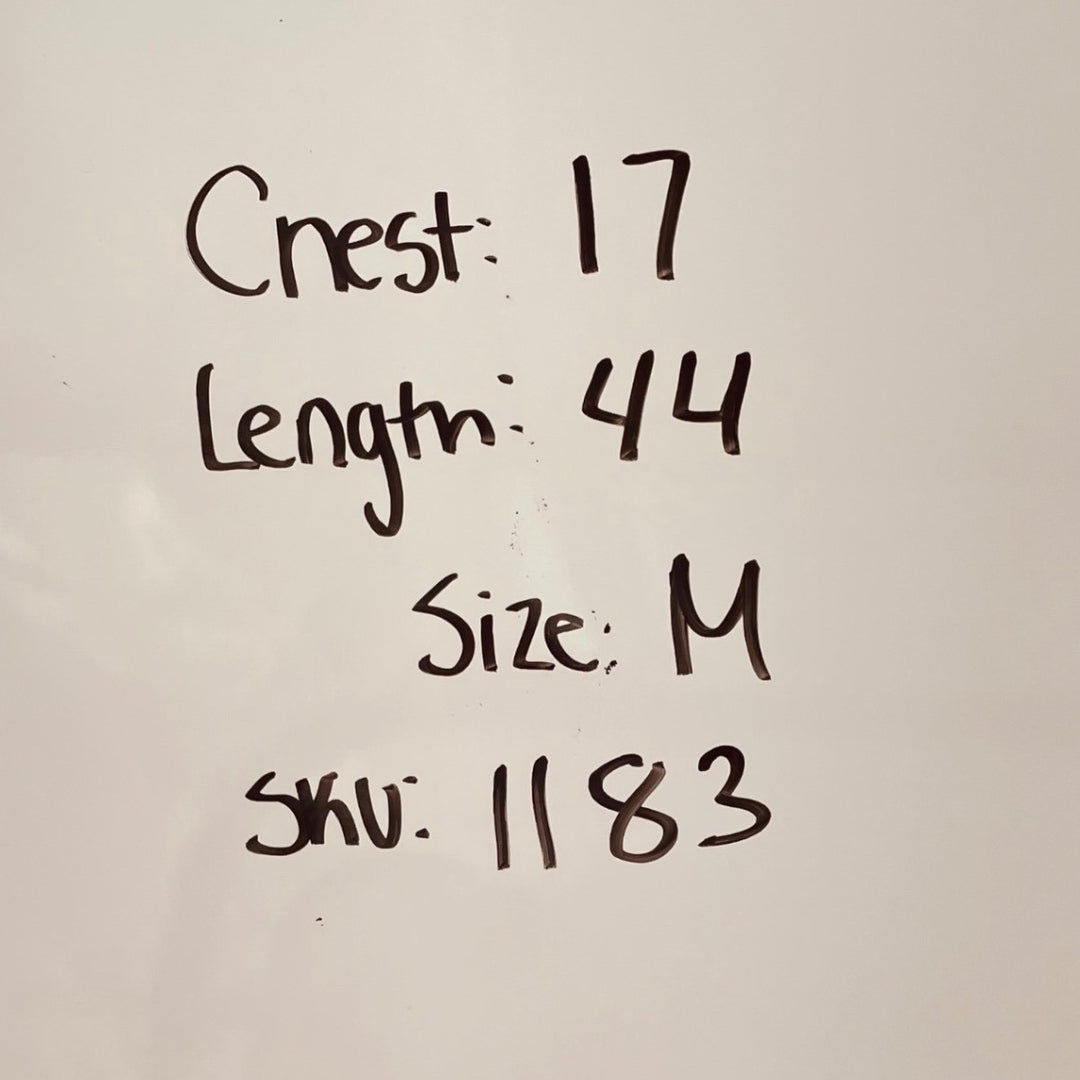 Chest: 17
Length: 44
Size: M
SKU: 1183